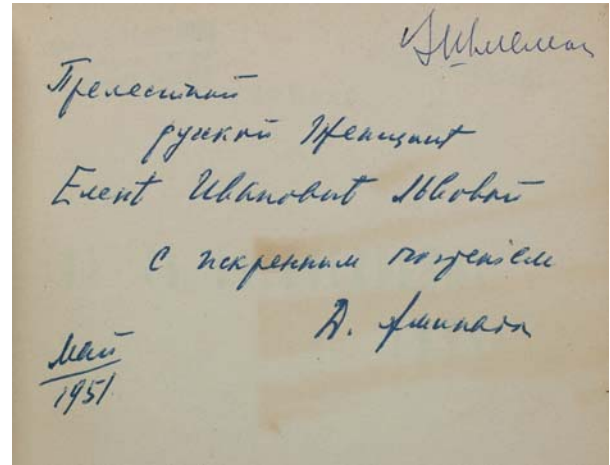 Шмеман
Прелестной
русской Женщинѣ
Еленѣ Ивановнѣ Львовой
с искренним почтенiем
Д. Аминадо
Май
1951